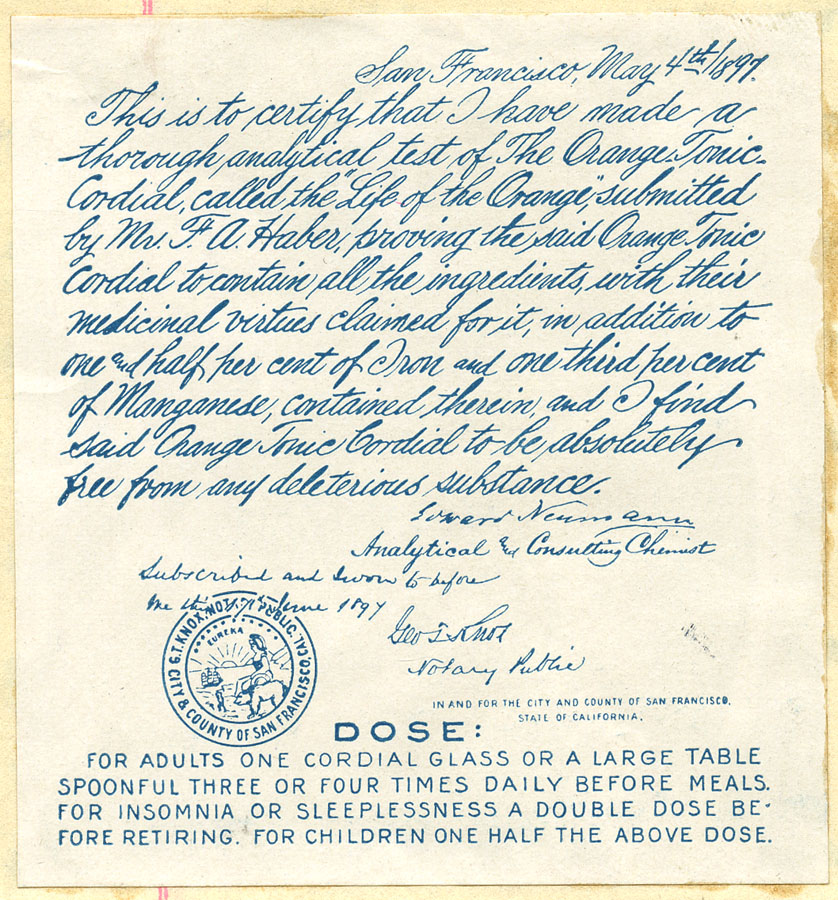 San Francisco, May 4th/1897.
This is to certify, that I have made a
thorough, analytical, test of The Orange-Tonic-
Cordial, called, the "Life of the Orange", submitted
by Mr. F. A. Haber, proving the said Orange Tonic
Cordial to contain all the ingredients, with their
medicinal virtues claimed for it, in addition to
one and half per cent of Iron and one third per cent
of Manganese, contained therein, and I find
said Orange Tonic Cordial to be, absolutely
free from any deleterious substance.
Edward Neumann
Analytical and Consulting Chemist
Subscribed and Sworn to before
me this June 1897
Geo T Knox
Notary Public
G.T. KNOX, NOTARY PUBLIC.
CITY & COUNTY OF SAN FRANCISCO, CAL.
EUREKA
IN AND FOR THE CITY AND COUNTY OF SAN FRANCISCO,
STATE OF CALIFORNIA.
DOSE:
FOR ADULTS ONE CORDIAL GLASS OR A LARGE TABLE
SPOONFUL THREE OR FOUR TIMES DAILY BEFORE MEALS.
FOR INSOMNIA OR SLEEPLESSNESS A DOUBLE DOSE BE-
FORE RETIRING. FOR CHILDREN ONE HALF THE ABOVE DOSE.